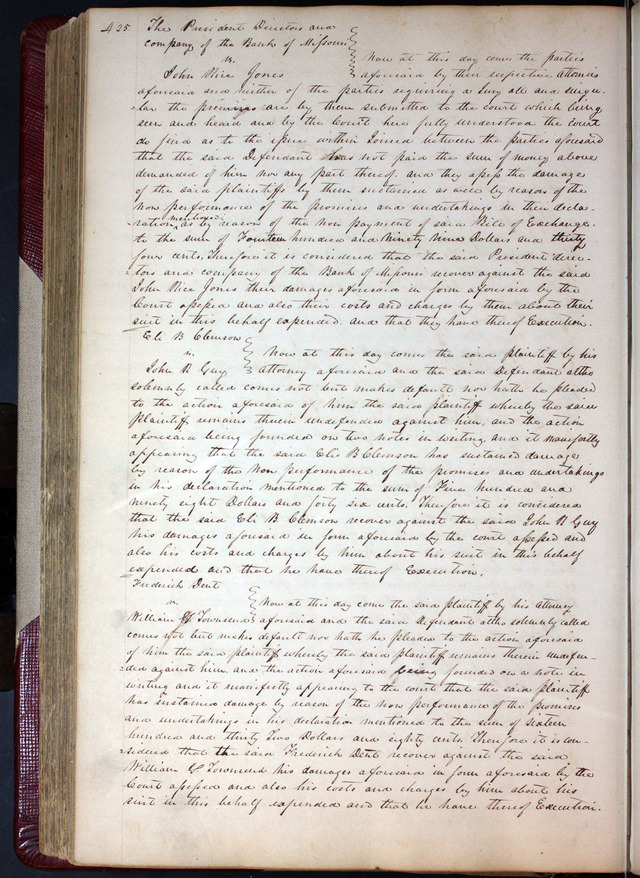 425 The President Directors and
company of the Bank of Missouri
vs. Now at this day comes the parties
John Rice Jones aforesaid by their respective attornies
aforesaid and neither of the parties requiring a Jury all and singu-
lar the promises are by them submitted to the court which being
seen and heard and by the Court here fully understood the court
do find as to the issue within Joined between the parties aforesaid
that the said Defendant has not paid the sum of money above
demanded of him nor any part thereof. and they assess the damages
of the said plaintiffs by them sustained as well by reason of the
non performance of the promises and undertakings in their decla-
ration mentioned as by reason of the non payment of said Bill of Exchange
to the sum of Fourteen hundred and Ninety Nine Dollars and thirty
four cents, therefore it is considered that the said President direc-
tors and company of the Bank of Missouri recover against the said
John Rice Jones their damages aforesaid in form aforesaid by the
Court assessed and also their costs and charges by them about their
suit in this behalf expended, and that they have thereof Execution.
Eli B Clemson
vs. Now at this day comes the said plaintiff by his
John R Guy attorney aforesaid and the said Defendant altho
solemnly called comes not but makes default nor hath he pleaded
to the action aforesaid of him the said plaintiff whereby the said
plaintiff remains therein undefended against him, and the action
aforesaid being founded on two notes in writing, and it manifestly
appearing that the said Eli B Clemson has sustained damages
by reason of the Non performance of the promises and undertakings
in his declaration mentioned to the sum of Five hundred and
ninety eight Dollars and forty six cents. Therefore it is considered
that the said Eli B Clemson recover against the said John R Guy
his damages aforesaid in form aforesaid by the court assessed and
also his costs and charges by him about his suit in this behalf
expended and that he have thereof Execution.
Frederick Dent
vs. Now at this day come the said plaintiff by his attorney
William G Townsend aforesaid and the said Defendant altho solemnly called
comes not but makes default nor hath he pleaded to the action aforesaid
of him the said plaintiff whereby the said plaintiff remains therein undefen-
ded against him, and the action aforesaid being founded on a note in
writing and it manifestly appearing to the court that the said plaintiff
has sustained damage by reason of the non performance of the promises
and undertakings in his declaration mentioned to the sum of sixteen
hundred and thirty Two Dollars and eighty cents. Therefore it is con-
sidered that the said Frederick Dent recover against the said
William G Townsend his damages aforesaid in form aforesaid by the
Court assessed and also his costs and charges by him about his
suit in this behalf expended and that he have thereof Execution.